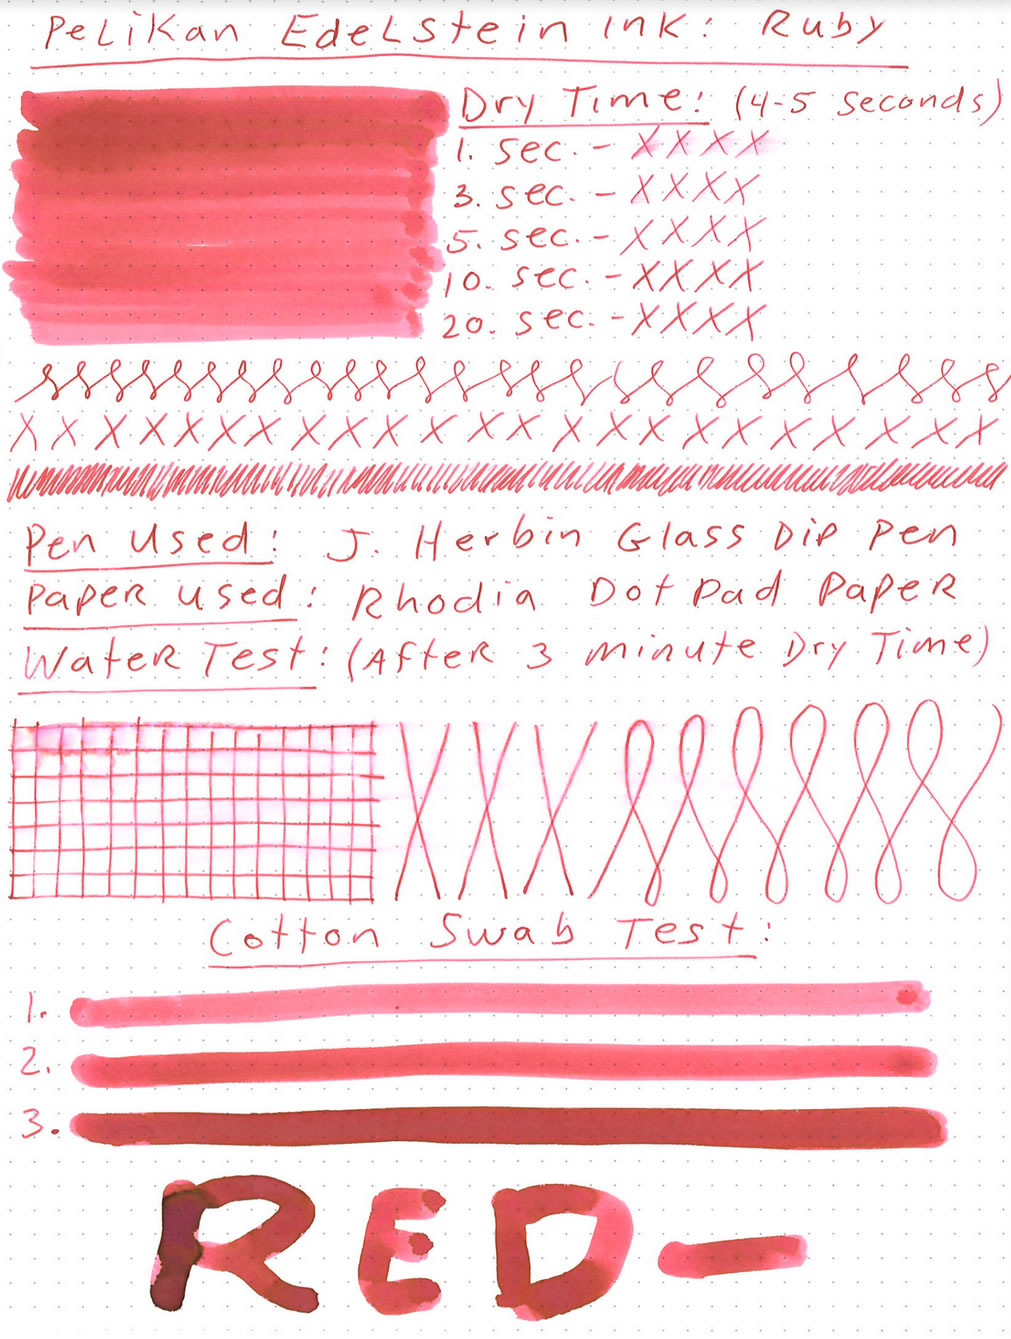 Pelikan Edelstein Ink: Ruby
Dry Time: (4-5 seconds)
1. sec. - XXXX
3. sec. - XXXX
5. sec. - XXXX
10. sec. - XXXX
20. sec. - XXXX
X X X X X X X X X X X X X X X X X X X X X X X X
Pen Used: J. Herbin Glass Dip Pen
Paper used: Rhodia Dot Pad Paper
Water Test: (After 3 minute Dry Time)
XXX
Cotton Swab Test:
1.
2.
3.
RED-